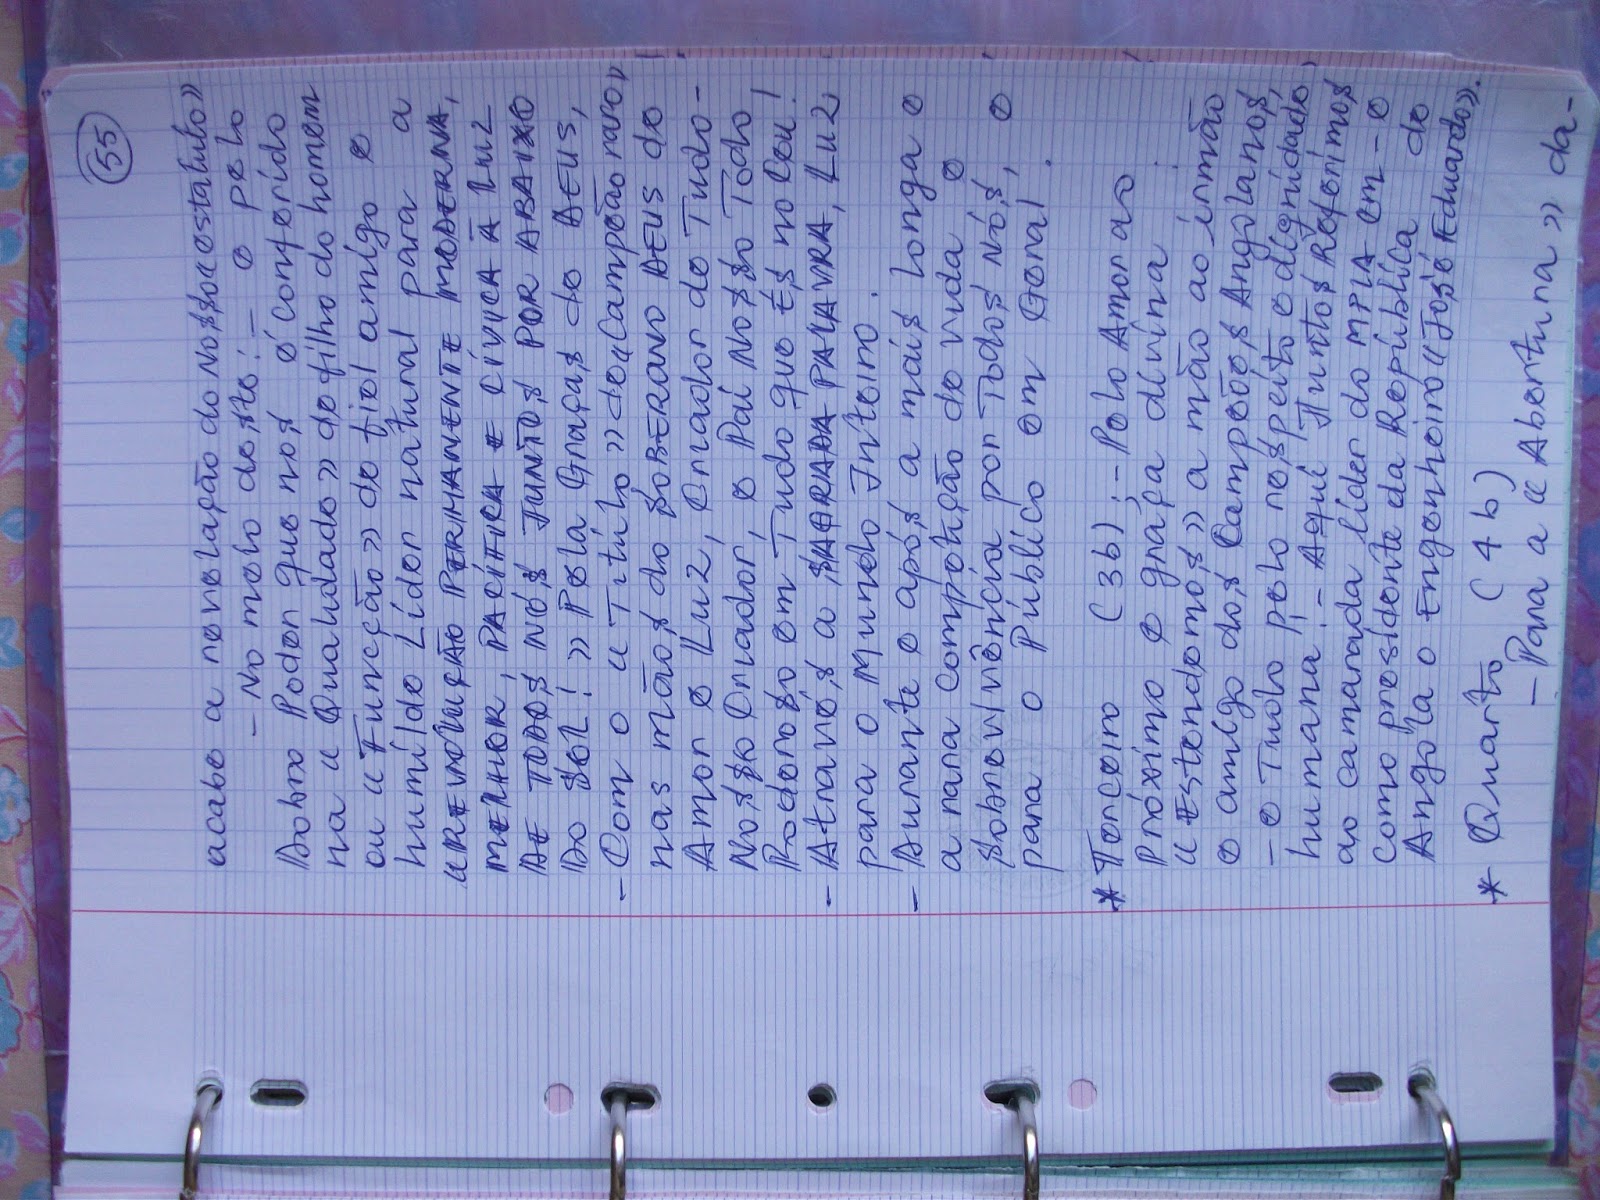 55
acabe a revelação do Nosso «estatuto»
- No meio deste: - e pelo
Dobro Poder que nos é conferido
na «Qualidade» de filho do homem
ou «Função» de fiel amigo e
humilde Líder natural para a
«REVOLUÇÃO PERMANENTE MODERNA,
MELHOR, PACÍFICA E CÍVICA À LUZ
DE TODOS NÓS JUNTOS POR ABAIXO
DO SOL!» Pela Graças de DEUS,
- Com o «Título» de «Campeão raro»
nas mãos do SOBERANO DEUS do
Amor e Luz, Criador de Tudo -
Nosso Criador, e Pai Nosso Todo
Poderoso em Tudo que És no Céu!
- Através a SAGRADA PALAVRA, LUZ
para o Mundo Inteiro.
- Durante e após a mais longa e
a rara competição de vida e
sobrevivência por Todos Nós, e
para o Público em Geral.
* Terceiro (3b): - Pelo Amor ao
Próximo e graça divina:
«Estendemos» a mão ao irmão
e amigo dos Campeões Angolanos,
- e Tudo pelo respeito e dignidade
humana! - Aqui Juntos Referimos
ao camarada líder do MPLA em - e
como presidente da República de
Angola o Engenheiro «José Eduardo».
* Quarto (4b)
- Para a «Abertura» da-